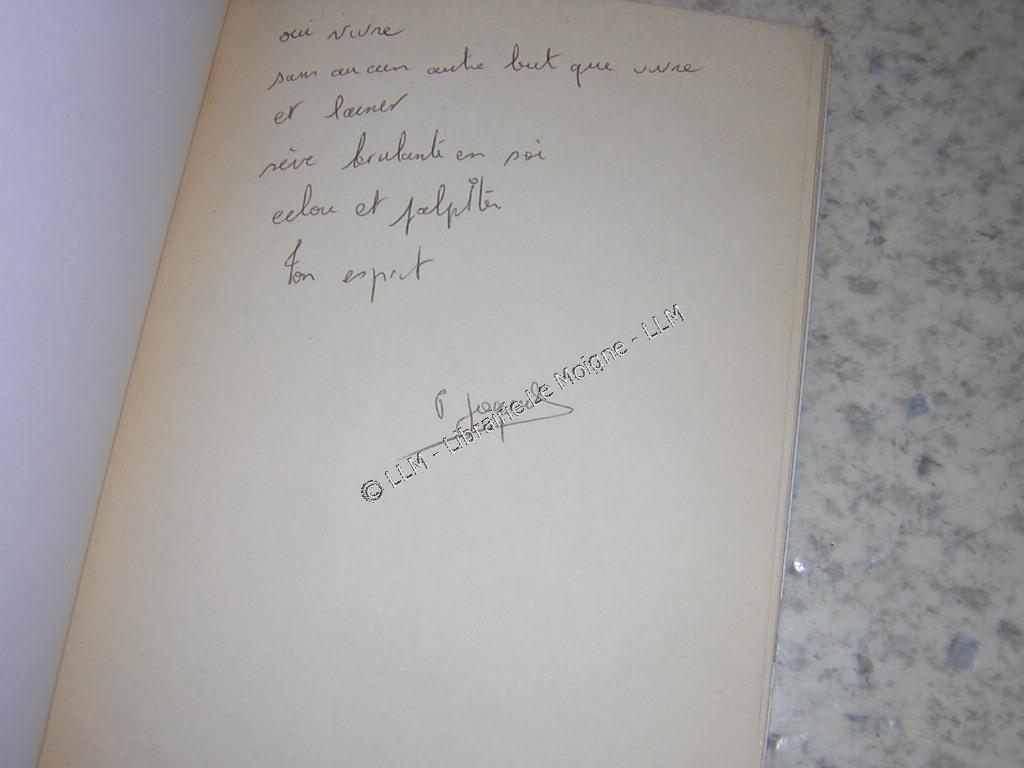 oui vivre
sans aucun autre but que vivre
et laisser
sève brulante en soi
eclore et palpiter
Ton esprit
P
© LLM - Librairie Le Moigne - LLM